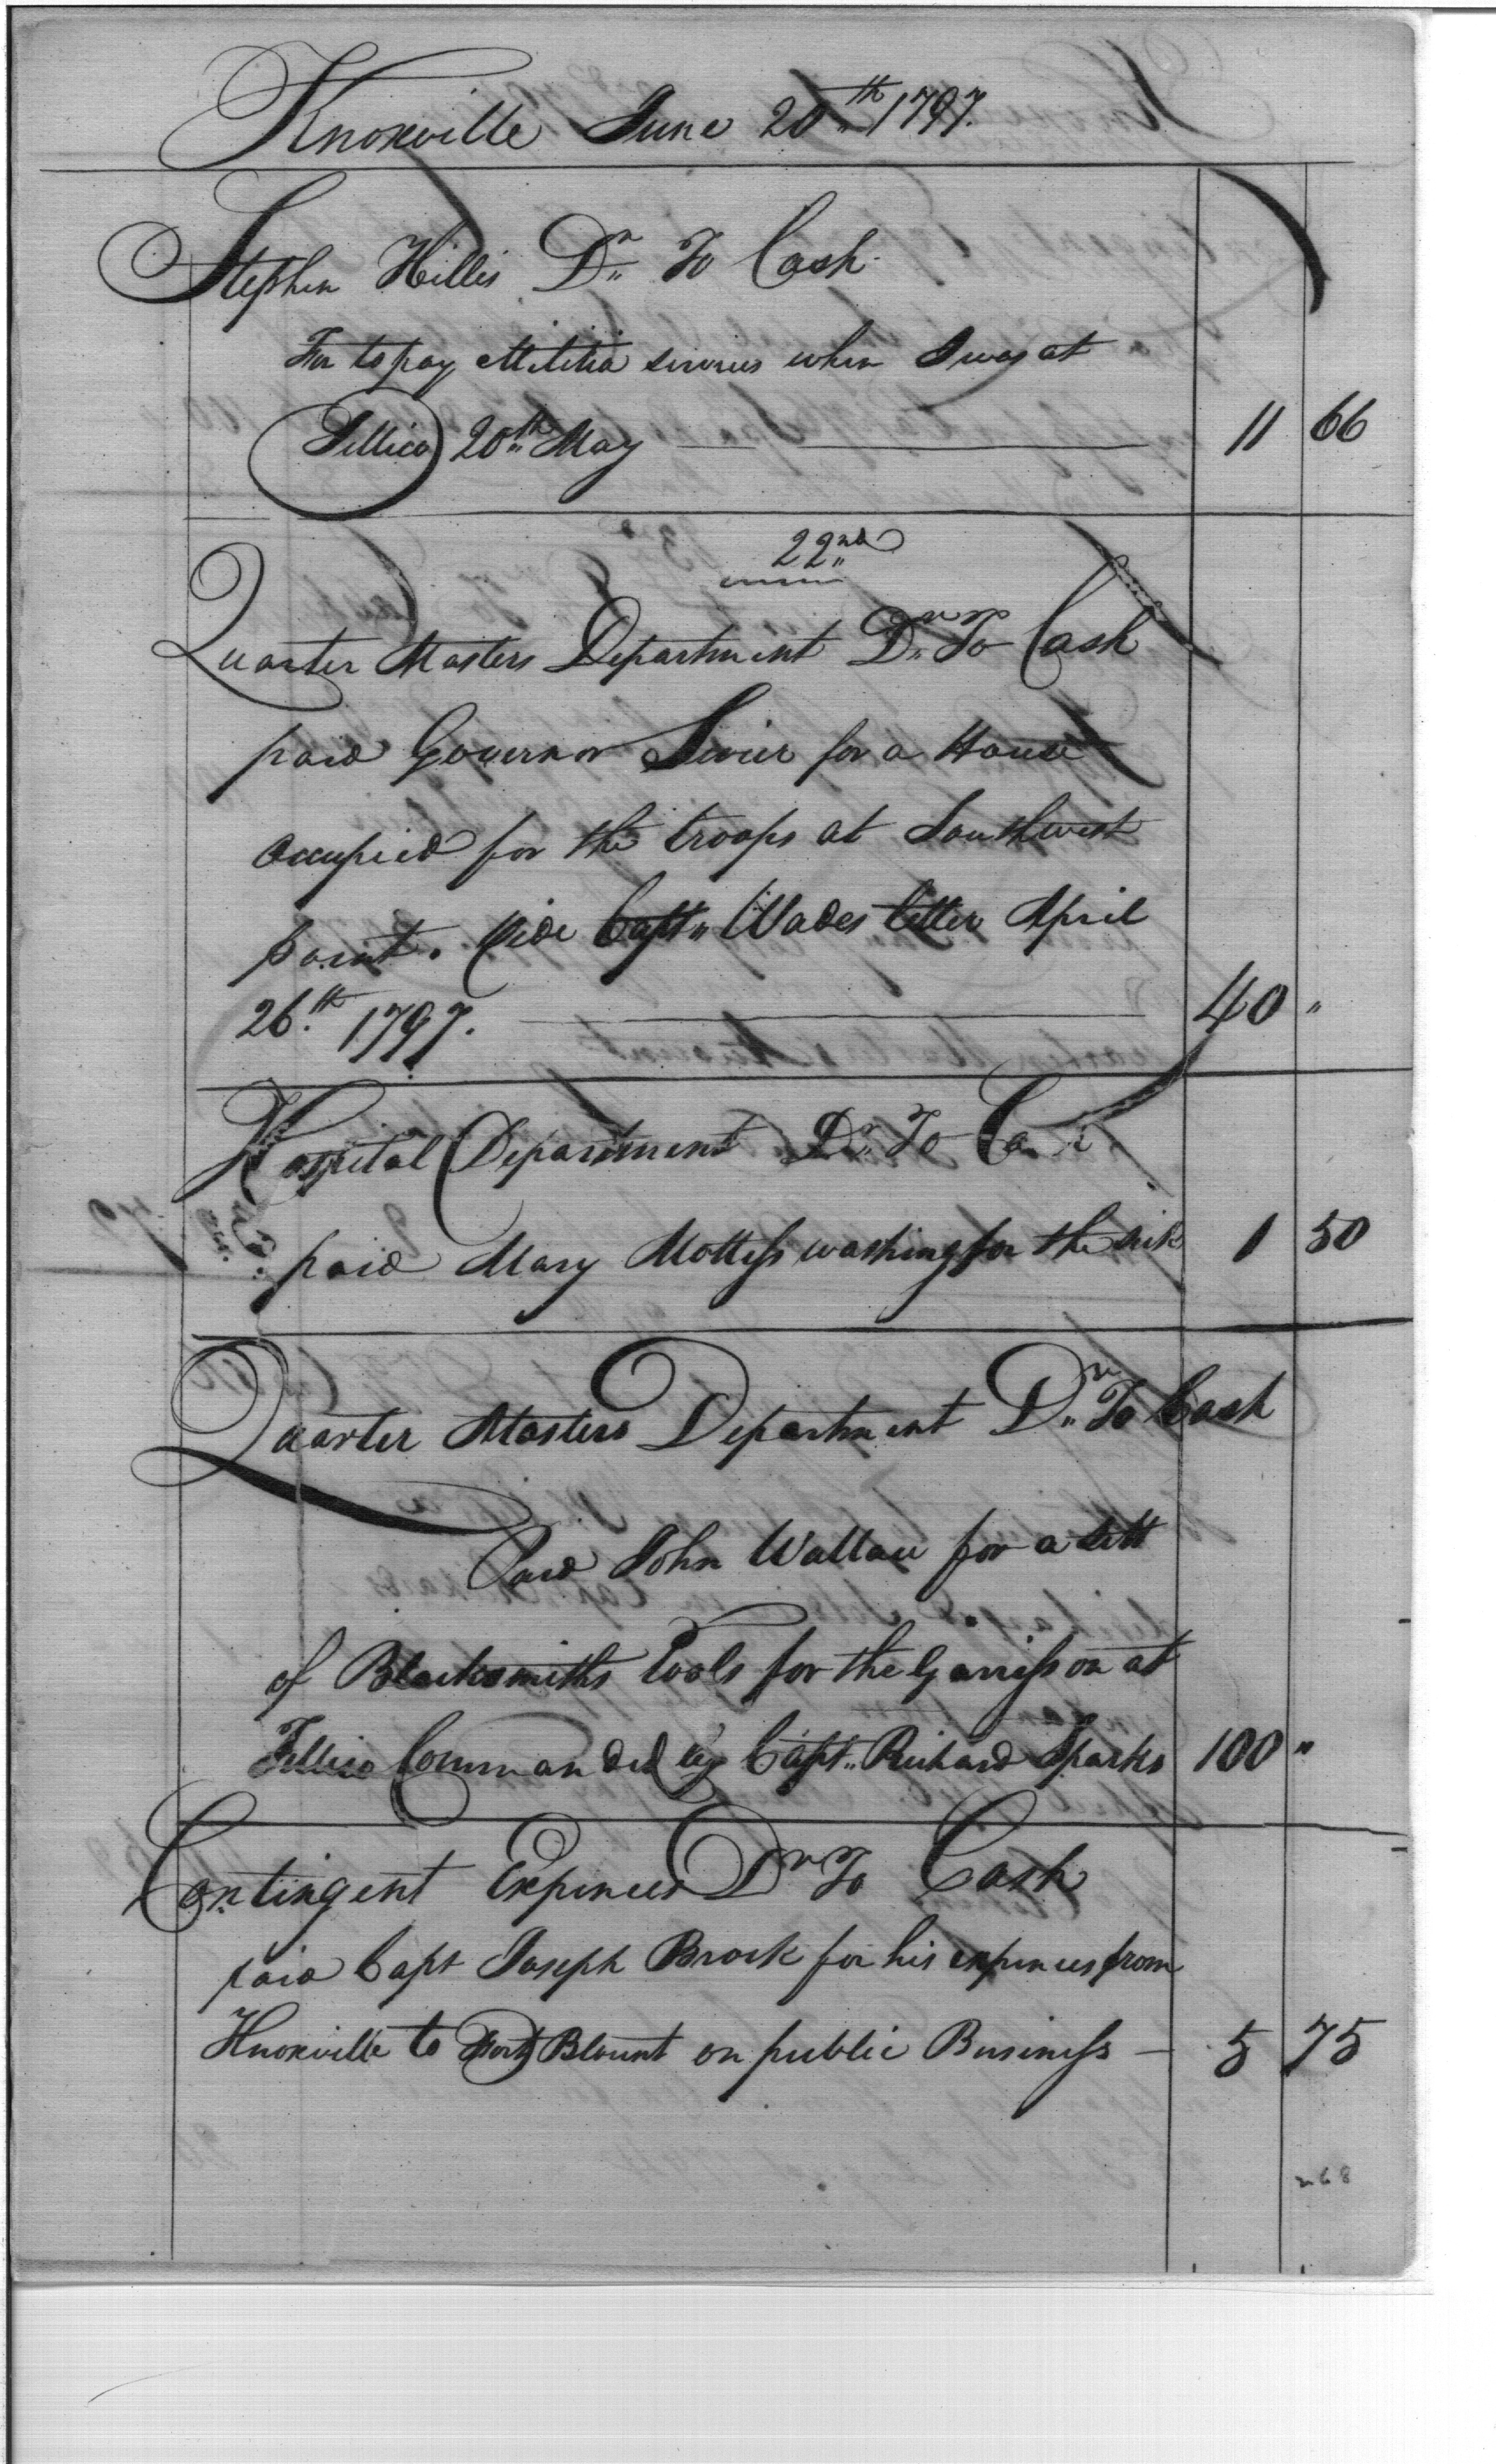 Knoxville June 20th 1797.
Stephen Hillis Dr To Cash
For to pay Militia services when I was at
Tellico 20th May 11 66
22nd
Quarter Masters Department Dr To Cash
paid Governor Sevier for a House
occupied for the troops at Southwest
point. Vide Capt Wades letter April
26th 1797. 40 "
Hospital Department Dr To
paid Mary washing for the sick 1 50
Quarter Masters Department Dr To Cash
Paid John Wallace for a Sett
of Blacksmiths Tools for the Garrisson at
Tellico Commanded by Capt Richard Sparks 100 "
Contingent Expences Dr To Cash
paid Capt Joseph Brock for his expences from
Knoxville to Fort Blount on public Business — 5 75
268